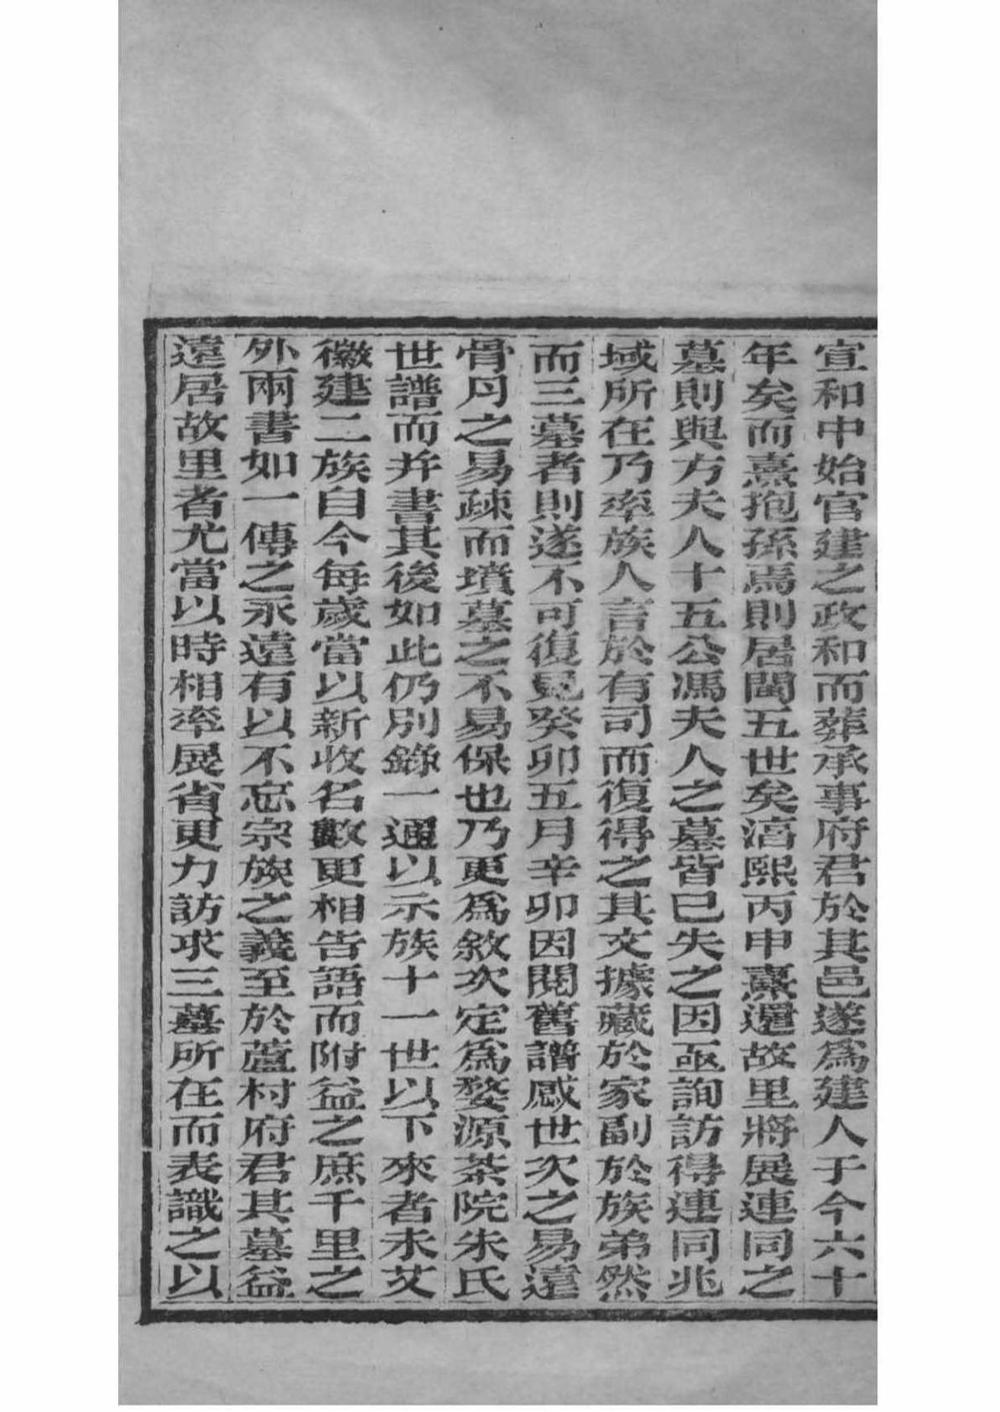 宣和中始官建之政和而葬承事府君於其邑遂爲建人于今六十
年矣而熹抱孫焉則居閩五世矣淳熙丙申熹還故里將展連同之
墓則與方夫人十五公馮夫人之墓皆已失之因亟詢訪得連同兆
域所在乃率族人言於有司而復得之其文據藏於家副於族弟然
而三墓者則遂不可復見癸卯五月辛卯因閱舊譜感世次之易遠
骨月之易疎而墳墓之不易保也乃更爲敘次定爲婺源茶院朱氏
世譜而并書其後如此仍別錄一通以示族十一世以下來者未艾
徽建二族自今每歲當以新收名數更相告語而附益之庶千里之
外兩書如一傳之永遠有以不忘宗族之義至於蘆村府君其墓益
遠居故里者尤當以時相率展省更力訪求三墓所在而表識之以